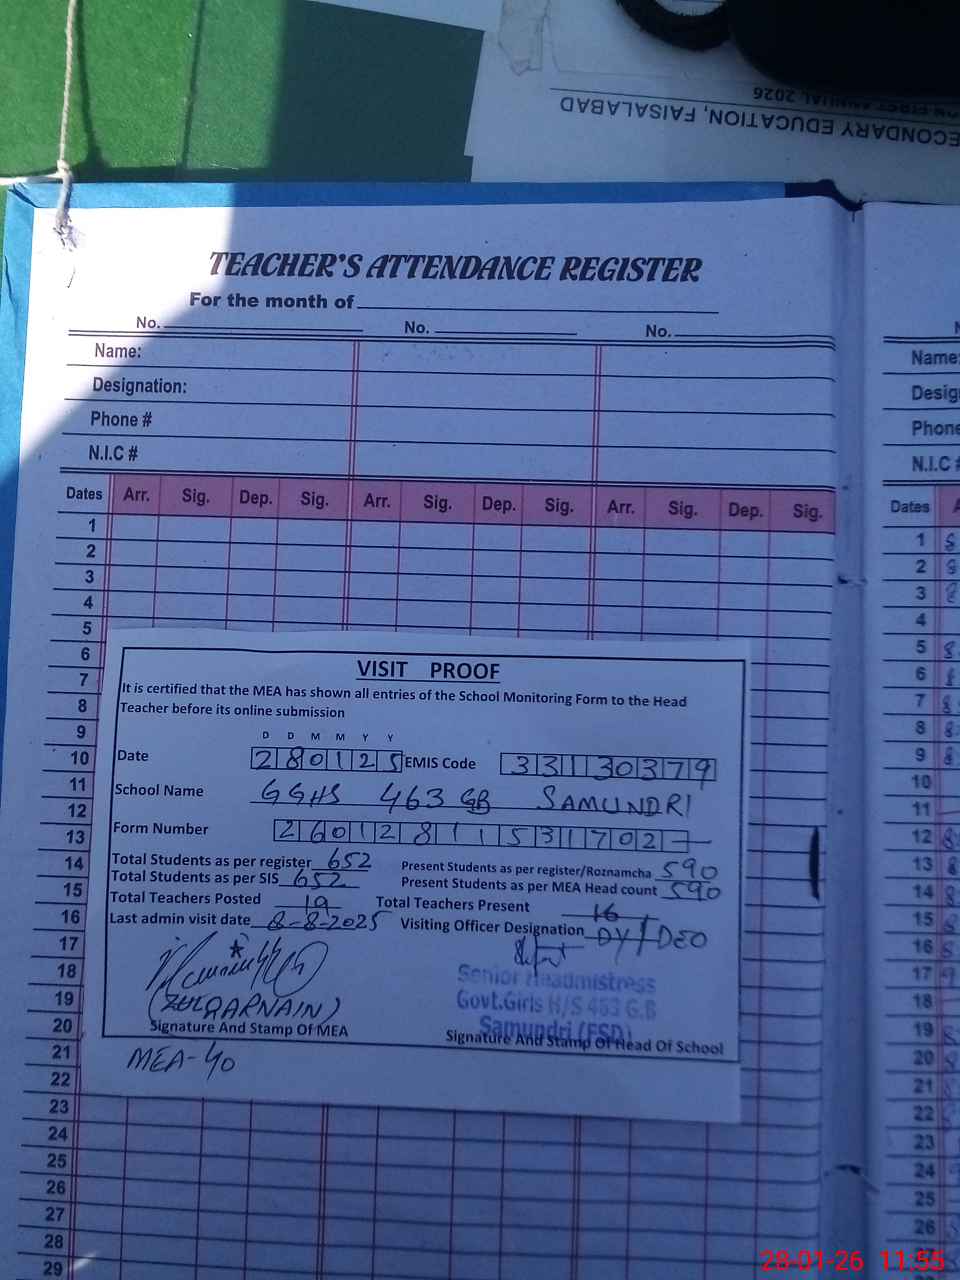 SECONDARY EDUCATION, FAISALABAD
FIRST ANNUAL 2026
TEACHER'S ATTENDANCE REGISTER
For the month of
No. No. No.
Name:
Designation:
Phone #
N.I.C #
Dates Arr. Sig. Dep. Sig. Arr. Sig. Dep. Sig. Arr. Sig. Dep. Sig.
1
2
3
4
5
6
7
8
9
10
11
12
13
14
15
16
17
18
19
20
21
22
23
24
25
26
27
28
29
VISIT PROOF
It is certified that the MEA has shown all entries of the School Monitoring Form to the Head
Teacher before its online submission
D D M M Y Y
Date 280125 EMIS Code 33130379
School Name GGHS 463 GB SAMUNDRI
Form Number 26012811531702-
Total Students as per register 652 Present Students as per register/Roznamcha 590
Total Students as per SIS 652 Present Students as per MEA Head count 590
Total Teachers Posted 19 Total Teachers Present 16
Last admin visit date 8-8-2025 Visiting Officer Designation DY/DEO
(ZULQARNAIN)
Signature And Stamp Of MEA
Senior Headmistress
Govt.Girls H/S 463 G.B
Samundri (FSD)
Signature And Stamp Of Head Of School
MEA-40
Name:
Desig
Phone
N.I.C #
Dates
1
2
3
4
5
6
7
8
9
10
11
12
13
14
15
16
17
18
19
20
21
22
23
24
25
26
28-01-26 11:55